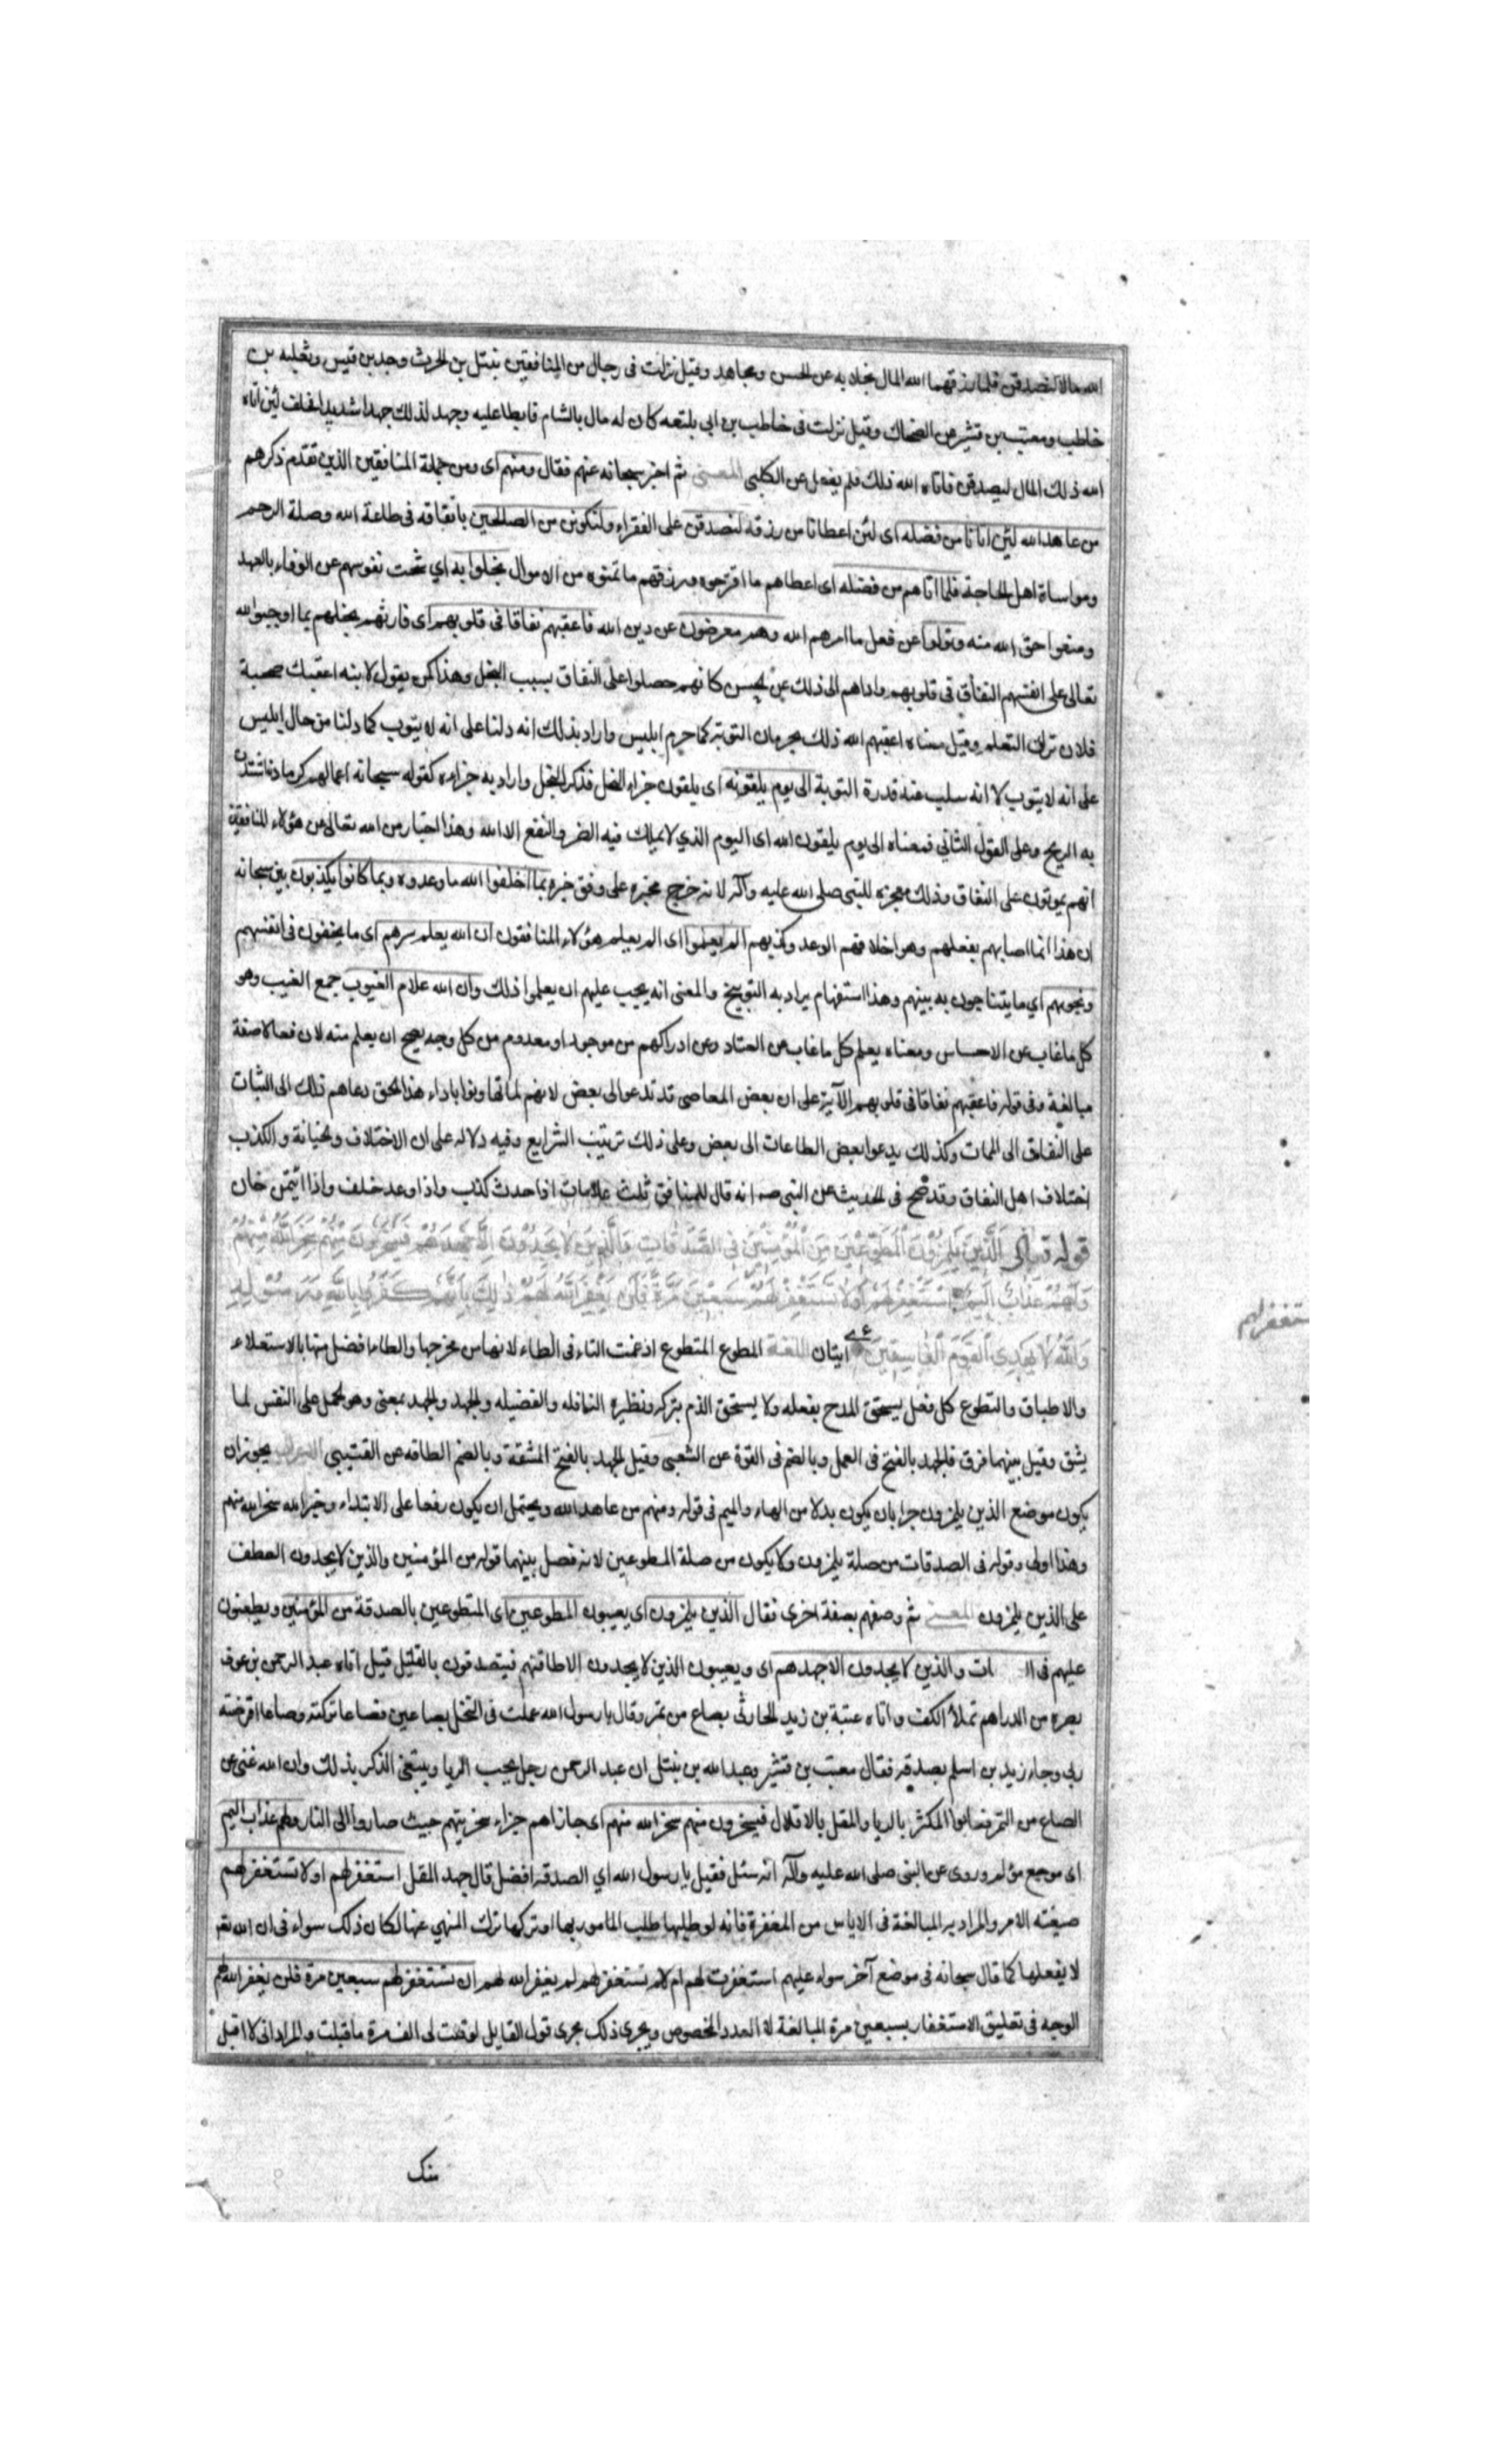 الله مالا لنصدقن فلما رزقهما الله المال بخلا به عن الحسن ومجاهد وقيل نزلت فى رجال من المنافقين نبتل بن الحرث وجد بن قيس وثعلبه بن
خاطب ومعتب بن قشير عن الضحاك وقيل نزلت فى خاطب بن ابى بلتعه كان له مال بالشام فابطا عليه وجهد لذلك جهدا شديدا فحلف لئن اتاه
الله ذلك المال ليصدقن فاتاه الله ذلك فلم يفعل عن الكلبى المعنى ثم اخبر سبحانه عنهم فقال ومنهم اى ومن جملة المنافقين الذين تقدم ذكرهم
من عاهد الله لئن اتانا من فضله اى لئن اعطانا من رزقه لنصدقن على الفقراء ولنكونن من الصالحين بانفاقه فى طاعة الله وصلة الرحم
ومواساة اهل الحاجة فلما اتاهم من فضله اى اعطاهم ما اقترحوه ورزقهم ما تمنوه من الاموال بخلوا به اي شحت نفوسهم عن الوفاء بالعهد
ومنعوا حق الله منه وتولوا عن فعل ما امرهم الله وهم معرضون عن دين الله فاعقبهم نفاقا فى قلوبهم اى فاورثهم بخلهم بما اوجبوا لله
تعالى على انفسهم النفاق فى قلوبهم واداهم الى ذلك عن الحسن كانهم حصلوا على النفاق بسبب البخل وهذا كمن يقول لابنه اعقبك صحبة
فلان ترك التعلم وقيل معناه اعقبهم الله ذلك بحرمان التوبة كما حرم ابليس واراد بذلك انه دلنا على انه لا يتوب كما دلنا من حال ابليس
على انه لا يتوب لا انه سلب عنه قدرة التوبة الى يوم يلقونه اى يلقون جزاء البخل فذكر البخل واراد به جزاءه كقوله سبحانه اعمالهم كرماد اشتدت
به الريح وعلى القول الثانى فمعناه الى يوم يلقون الله اى اليوم الذي لا يملك فيه الضر والنفع الا الله وهذا اخبار من الله تعالى عن هؤلاء المنافقين
انهم يموتون على النفاق وذلك معجزه للنبى صلى الله عليه وآله لانه خرج مخبره على وفق خبره بما اخلفوا الله ما وعدوه وبما كانوا يكذبون بين سبحانه
ان هذا انما اصابهم بفعلهم وهو اخلافهم الوعد وكذبهم الم يعلموا اى الم يعلم هؤلاء المنافقون ان الله يعلم سرهم اى ما يخفون فى انفسهم
ونجويهم اي ما يتناجون به بينهم وهذا استفهام يراد به التوبيخ والمعنى انه يجب عليهم ان يعلموا ذلك وان الله علام الغيوب جمع الغيب وهو
كل ما غاب عن الاحساس ومعناه يعلم كل ما غاب عن العباد وعن ادراكهم من موجود او معدوم من كل وجه يصح ان يعلم منه لان فعالا صفة
مبالغة وفى قوله فاعقبهم نفاقا فى قلوبهم الآية على ان بعض المعاصى قد تدعو الى بعض لانهم لما تهاونوا باداء هذا الحق دعاهم ذلك الى الثبات
على النفاق الى الممات وكذلك يدعو ابعض الطاعات الى بعض وعلى ذلك ترتيب الشرايع وفيه دلاله على ان الاختلاف والخيانة والكذب
اختلاف اهل النفاق وقد صح فى الحديث عن النبى صه انه قال للمنافق ثلث علامات اذا حدث كذب واذا وعد خلف واذا ائتمن خان
قوله تعالى الَّذِينَ يَلْمِزُونَ الْمُطَّوِّعِينَ مِنَ الْمُؤْمِنِينَ فِى الصَّدَقَاتِ وَالَّذِينَ لَا يَجِدُونَ اِلَّا جُهْدَهُمْ فَيَسْخَرُونَ مِنْهُمْ سَخِرَ اللهُ مِنْهُمْ
وَلَهُمْ عَذَابٌ اَلِيمٌ اِسْتَغْفِرْ لَهُمْ اَوْ لَا تَسْتَغْفِرْ لَهُمْ اِنْ تَسْتَغْفِرْ لَهُمْ سَبْعِينَ مَرَّةً فَلَنْ يَغْفِرَ اللهُ لَهُمْ ذٰلِكَ بِاَنَّهُمْ كَفَرُوا بِاللهِ وَرَسُولِهِ
وَاللهُ لَا يَهْدِى الْقَوْمَ الْفَاسِقِينَ ايتان اللغة المطوع المتطوع ادغمت التاء فى الطاء لانها من مخرجها والطاء افضل منها بالاستعلاء
والاطباق والتطوع كل فعل يستحق المدح بفعله ولا يستحق الذم بتركه ونظيره النافله والفضيله والجهد والجهد بمعنى وهو الحمل على النفس لما
يشق وقيل بينهما فرق فالجهد بالفتح فى العمل وبالضم فى القوة عن الشعبى وقيل الجهد بالفتح المشقة وبالضم الطاقه عن القتيبى الاعراب يجوز ان
يكون موضع الذين يلمزون جرا بان يكون بدلا من الهاء والميم فى قوله ومنهم من عاهد الله ويحتمل ان يكون رفعا على الابتداء وخبره الله سخر الله منهم
وهذا اولى وقوله فى الصدقات من صلة يلمزون ولا يكون من صلة المطوعين لانه فصل بينهما قوله من المؤمنين والذين لا يجدون العطف
على الذين يلمزون المعنى ثم وصفهم بصفة اخرى فقال الذين يلمزون اى يعيبون المطوعين اى المتطوعين بالصدقة من المؤمنين ويطعنون
عليهم فى ال ات والذين لا يجدون الا جهدهم اى ويعيبون الذين لا يجدون الا طاقتهم فيتصدقون بالقليل قيل اتاه عبد الرحمن بن عوف
بصره من الدراهم تملأ الكف واتاه عتبة بن زيد الحارثى بصاع من تمر وقال يا رسول الله عملت فى النخل بصاعين فصاعا تركته وصاعا اقرضته
ربى وجاء زيد بن اسلم بصدقه فقال معتب بن قشير وعبد الله بن نبتل ان عبد الرحمن رجل يحب الريا ويبتغى الذكر بذلك وان الله غنى عن
الصاع من التمر فعابوا المكثر بالريا والمقل بالاقلال فيسخرون منهم سخر الله منهم اى جازاهم جزاء سخريتهم حيث صاروا الى النار ولهم عذاب اليم
اى موجع مؤلم وروى عن النبى صلى الله عليه وآله انه سئل فقيل يا رسول الله اي الصدقه افضل قال جهد المقل استغفر لهم او لا تستغفر لهم
صيغته الامر والمراد به المبالغة فى الاياس من المغفرة فانه لو طلبها طلب المامور بها او تركها ترك المنهي عنها لكان ذلك سواء فى ان الله تعالى
لا يفعلها كما قال سبحانه فى موضع آخر سواء عليهم استغفرت لهم ام لم تستغفر لهم لم يغفر الله لهم ان تستغفر لهم سبعين مرة فلن يغفر الله لهم
الوجه فى تعليق الاستغفار بسبعين مرة المبالغة لا العدد المخصوص ويجرى ذلك مجرى قول القايل لو قلت لى الف مرة ما قبلت والمراد انى لا اقبل
منك